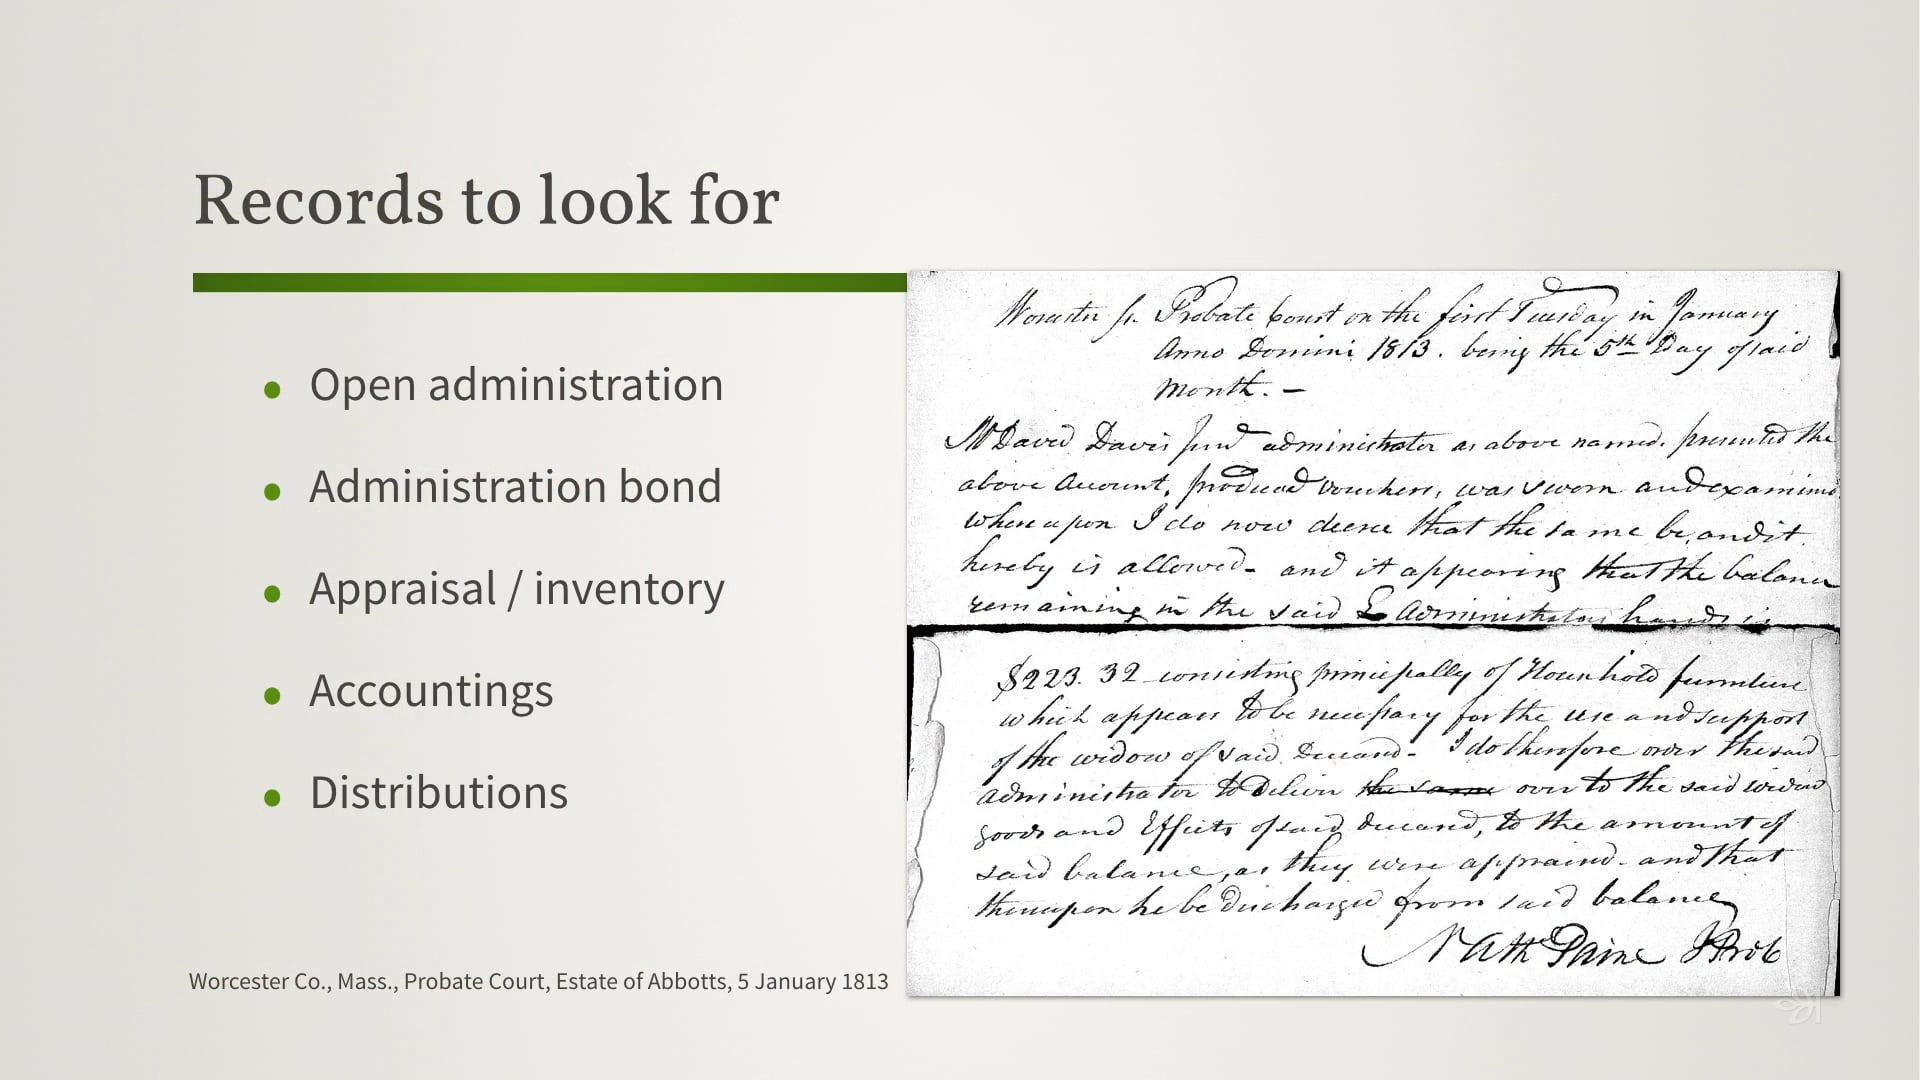 Records to look for
Open administration
Administration bond
Appraisal / inventory
Accountings
Distributions
Worcester Co., Mass., Probate Court, Estate of Abbotts, 5 January 1813
Worcester ss. Probate Court on the first Tuesday in January
Anno Domini 1813. being the 5th Day of said
month. —
Mr David Davis junr administrator as above named, presented the
above Account, produced vouchers, was sworn and examined
whereupon I do now decree that the same be, and it
hereby is allowed - and it appearing that the balance
remaining in the said Administrators hands is
$223. 32 consisting principally of Household furniture
which appears to be necessary for the use and support
of the widow of said Deceased - I do therefore order the said
administrator to deliver the same over to the said widow
goods and Effects of said deceased, to the amount of
said balance, as they were appraised - and that
thereupon he be discharged from said balance
Nathl Paine J Prob